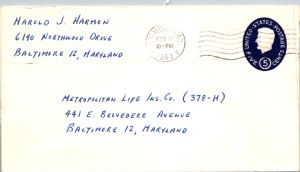 Harold J. Harmon
6190 Northwood Drive
Baltimore 12, Maryland
10-PM
UNITED STATES POSTAGE
FIVE 5 CENTS
Metropolitan Life Ins. Co. (378-H)
441 E. Belvedere Avenue
Baltimore 12, Maryland